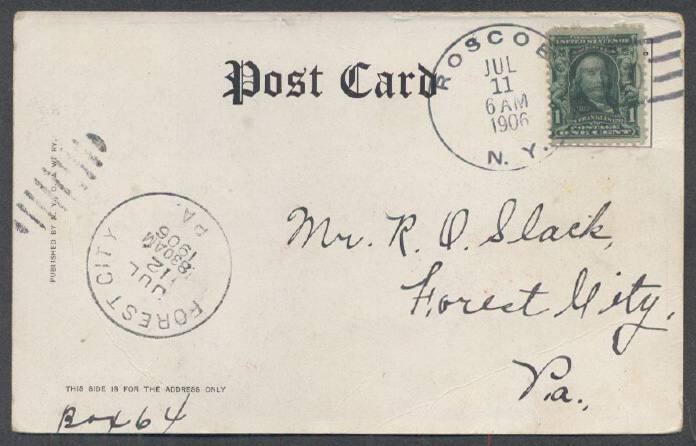 Post Card
ROSCOE
JUL
11
6 AM
1906
N. Y.
UNITED STATES OF
FRANKLIN
1 POSTAGE 1
ONE CENT
PUBLISHED BY
FOREST CITY
PA.
JUL
12
830AM
1906
Mr. R. O. Slack,
Forest City,
Pa.,
THIS SIDE IS FOR THE ADDRESS ONLY
Box 64